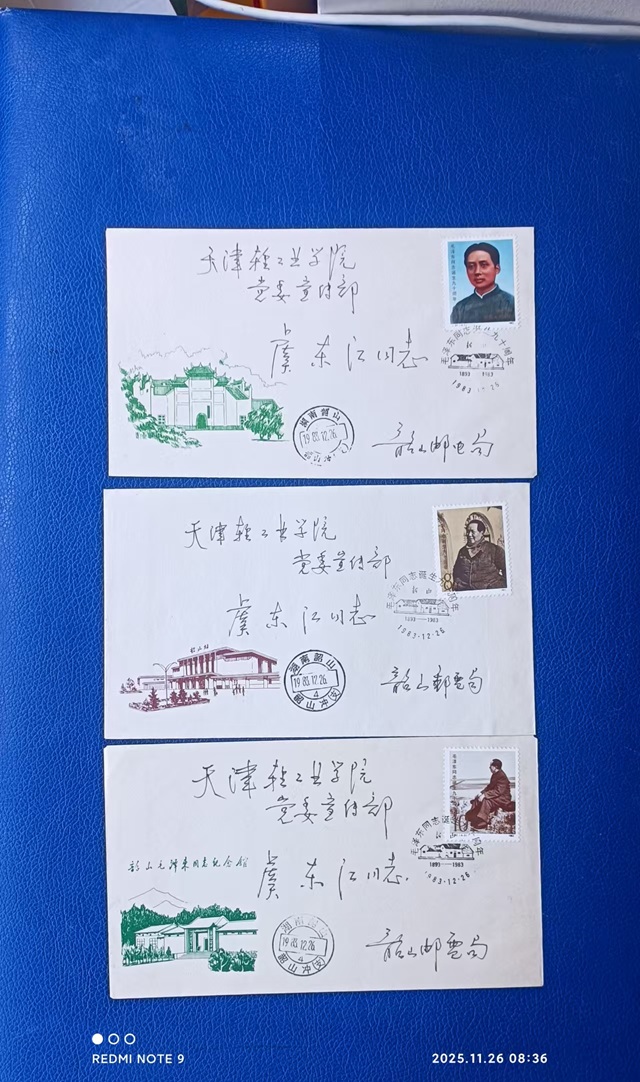 天津轻工业学院
党委宣传部
虞东江同志
毛泽东同志诞生九十周年
1893 1983
1983·12·26
湖南韶山
1983.12.26.
韶山邮电局
天津轻工业学院
党委宣传部
8
毛泽东同志诞生九十周年
1893—1983
1983·12·26
虞东江同志
韶山站
湖南韶山
1983.12.26.
4
韶山冲(支)
韶山邮电局
天津轻工业学院
党委宣传部
毛泽东同志诞生九十周年
1893—1983
1983·12·26
韶山毛泽东同志纪念馆
虞东江同志
湖南韶山
1983.12.26
4
韶山冲(支)
韶山邮电局
REDMI NOTE 9
2025.11.26 08:36